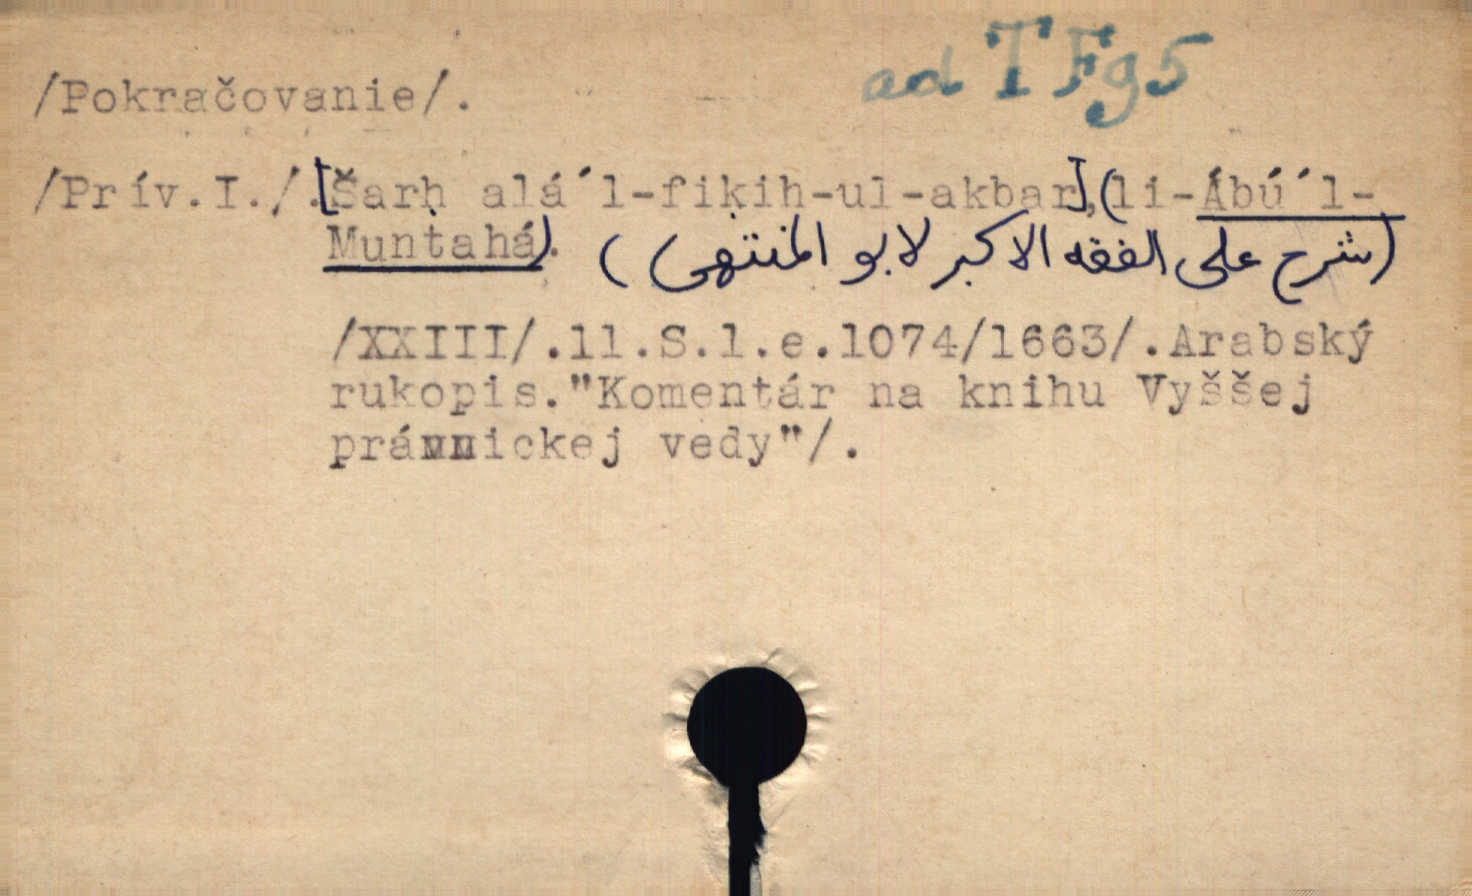 ad TFg5
/Pokračovanie/.
/Prív.I./.[Šarḥ alá´l-fiḳih-ul-akbar],(li-Ábú´l-
Muntahá).
(شرح على الفقه الاكبر لابو المنتهى)
/XXIII/.11.S.l.e.1074/1663/.Arabský
rukopis."Komentár na knihu Vyššej
právnickej vedy"/.